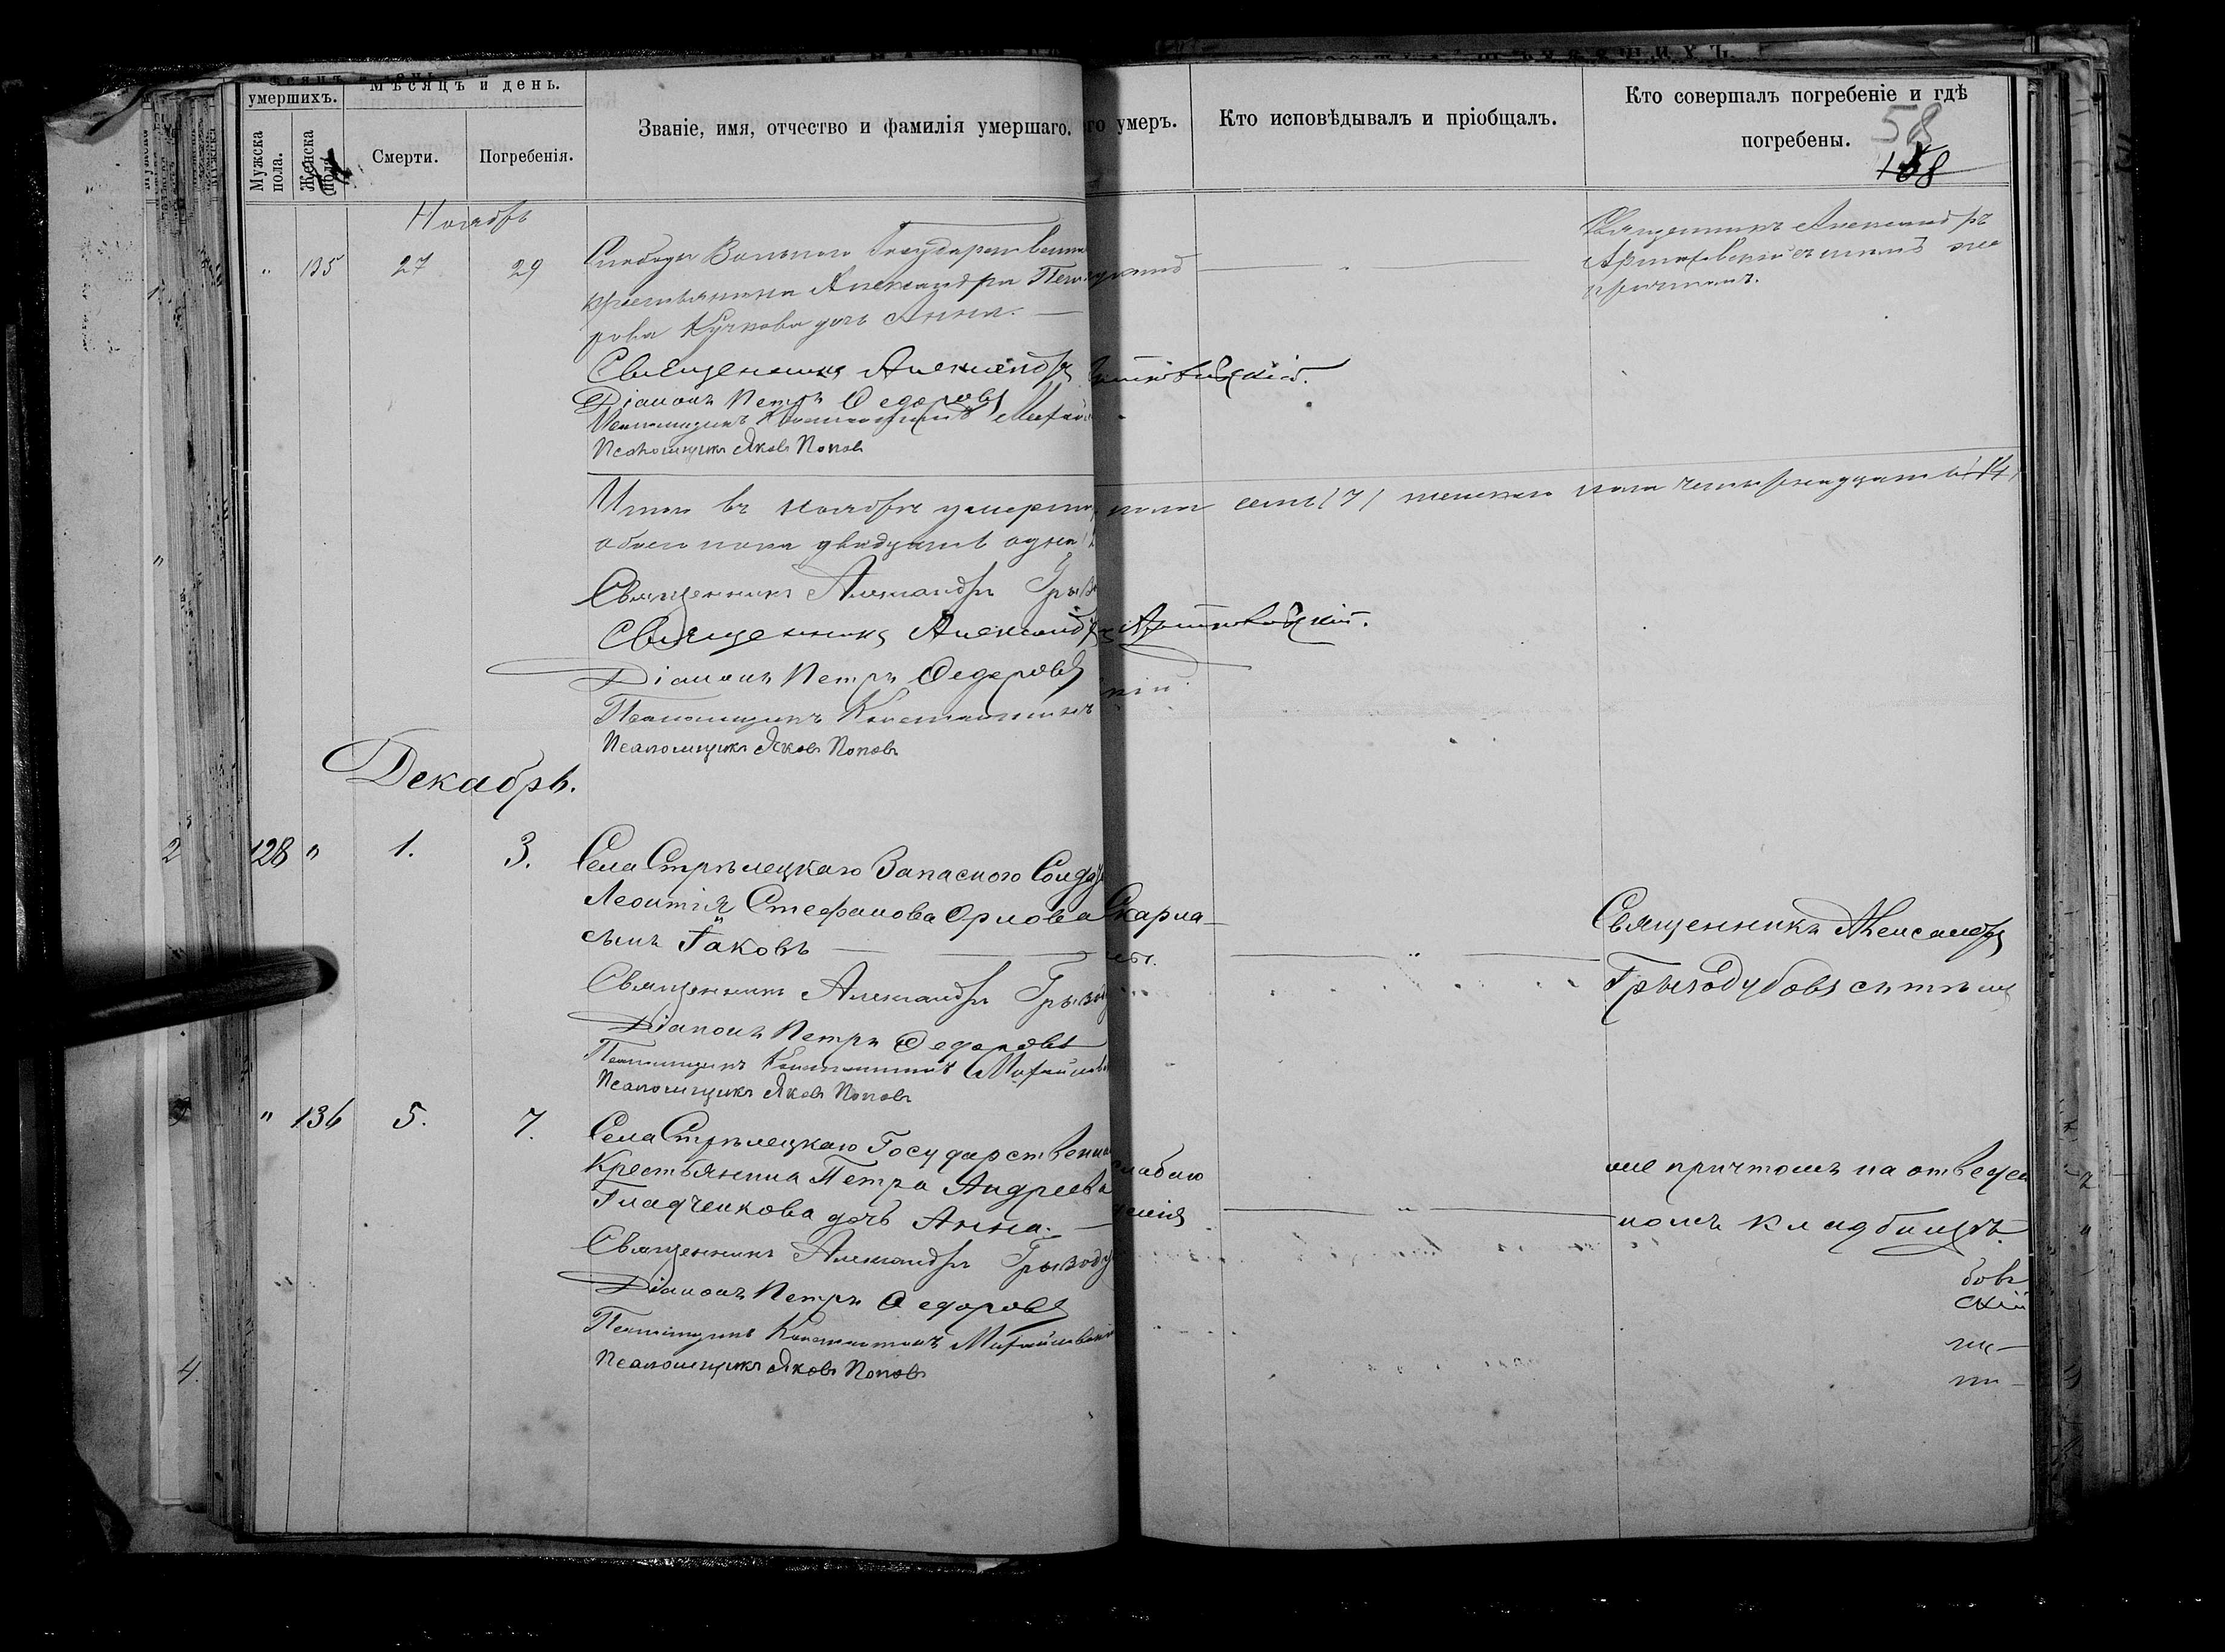 умершихъ.
Мѣсяцъ и день.
Мужска пола.
Женска пола.
Смерти.
Погребенія.
Званіе, имя, отчество и фамилія умершаго.
го умеръ.
Кто исповѣдывалъ и пріобщалъ.
Кто совершалъ погребеніе и гдѣ
погребены.
58
Ноябрь
" 135 27 29
Слободы Государствен
крестьянина Александра
рова дочь Анна.
Священникъ Александръ
Артаховскій съ тѣмъ же
причтомъ.
Священникъ Александръ
Діаконъ Петръ Федоровъ
Псаломщикъ Константинъ Михай
Псаломщикъ Яковъ Поповъ
Итого въ Ноябрѣ умерло пола семь (7) женскаго пола четырнадцать (14)
обоего пола двадцать одна
Священникъ Александръ Грызо
Священникъ Александръ
Діаконъ Петръ Федоровъ
Псаломщикъ Константинъ
Псаломщикъ Яковъ Поповъ
Декабрь.
128 " 1. 3.
Села Стрѣлецкаго Запасного Солда
Леонтія Стефанова Орлова
сынъ Іаковъ
Скарла-
Священникъ Александръ
Грызодубовъ съ тѣмъ
Священникъ Александръ Грызоду
Діаконъ Петръ Федоровъ
Псаломщикъ Константинъ Михайлов
Псаломщикъ Яковъ Поповъ
" 136 5. 7.
Села Стрѣлецкаго Государствен
Крестьянина Петра Андреева
Гладченкова дочь Анна.
слабаго
же причтомъ на отведен
номъ кладбищѣ.
Священникъ Александръ Грызоду
бовъ
Діаконъ Петръ Федоровъ
скій
Псаломщикъ Константинъ Михайловскій
Псаломщикъ Яковъ Поповъ